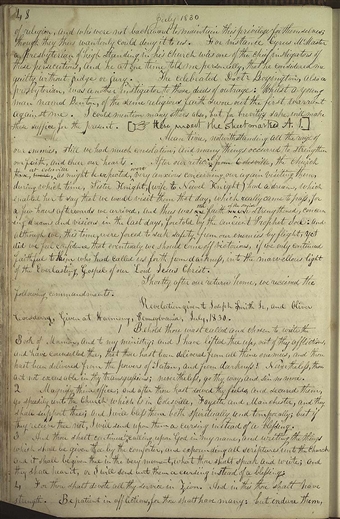 48
July 1830
of religion, and who were not backward to maintain this privilege for themselves
though they thus wantonly could deny it to us. For instance Cyrus McMaster
a Presbyterian of high standing in his church was one of the chief instigators of
these persecutions, and he at one time told me personally, that he considered me
guilty without judge or jury. The celebrated Doctor Boyington, also a
presbyterian, was another instigator to these deeds of outrage; Whilst a young
man named Benton, of the same religious faith swore out the first warrant
against me. I could mention many others also, but for brevity's sake, will make
these suffice for the present. Here insert the sheet marked A
Mean time, notwithstanding all the rage of
our enemies, still we had much consolation, and many things occurred to strengthen
our faith, and cheer our hearts. After our return from Colesville, the church
at Colesville
as might be expected, very anxious concerning our again visiting them;
during which time, Sister Knight, (wife to Newel Knight) had a dream, which
enabled her to say that we would visit them that day, which really came to pass, for
a few hours afterwards we arrived, and thus was our faith much strengthened, concern-
ing dreams and visions in the last days, foretold by the ancient Prophet Joel: and
although we, this time, were forced to seek safety from our enemies by flight, yet
did we feel confidence that eventually we should come off victorious, if we only continued
faithful to Him who had called us forth from darkness, into the marvellous light
of the Everlasting Gospel of our Lord Jesus Christ.
Shortly after our return home, we received the
following commandments.
Revelation given to Joseph Smith Jr, and Oliver
Cowdery, Given at Harmony, Pennsylvania, July, 1830.
1 Behold thou wast called and chosen to write the
Book of Mormon, and to my ministry; and I have lifted thee up out of thy afflictions,
and have counselled thee, that thou hast been delivered from all thine enemies, and thou
hast been delivered from the powers of Satan, and from darkness! Nevertheless, thou
art not excusable in thy transgressions; nevertheless go thy way and sin no more.
2 Magnify thine office; and after thou hast sowed thy fields and secured them,
go speedily unto the church which is in Colesville, Fayette and Manchester, and they
shall support thee; and I will bless them both spiritually and temporally; but if
they receive thee not, I will send upon them a cursing instead of a blessing.
3 And thou shalt continue in calling upon God in my name, and writing the things
which shall be given thee by the Comforter; and expounding all scriptures unto the church
and it shall be given thee in the very moment, what thou shalt speak and write; and
they shall hear it, or I will send unto them a cursing instead of a blessing:
4 For thou shalt devote all thy service in Zion. And in this thou shalt have
strength. Be patient in afflictions, for thou shalt have many: but endure them,